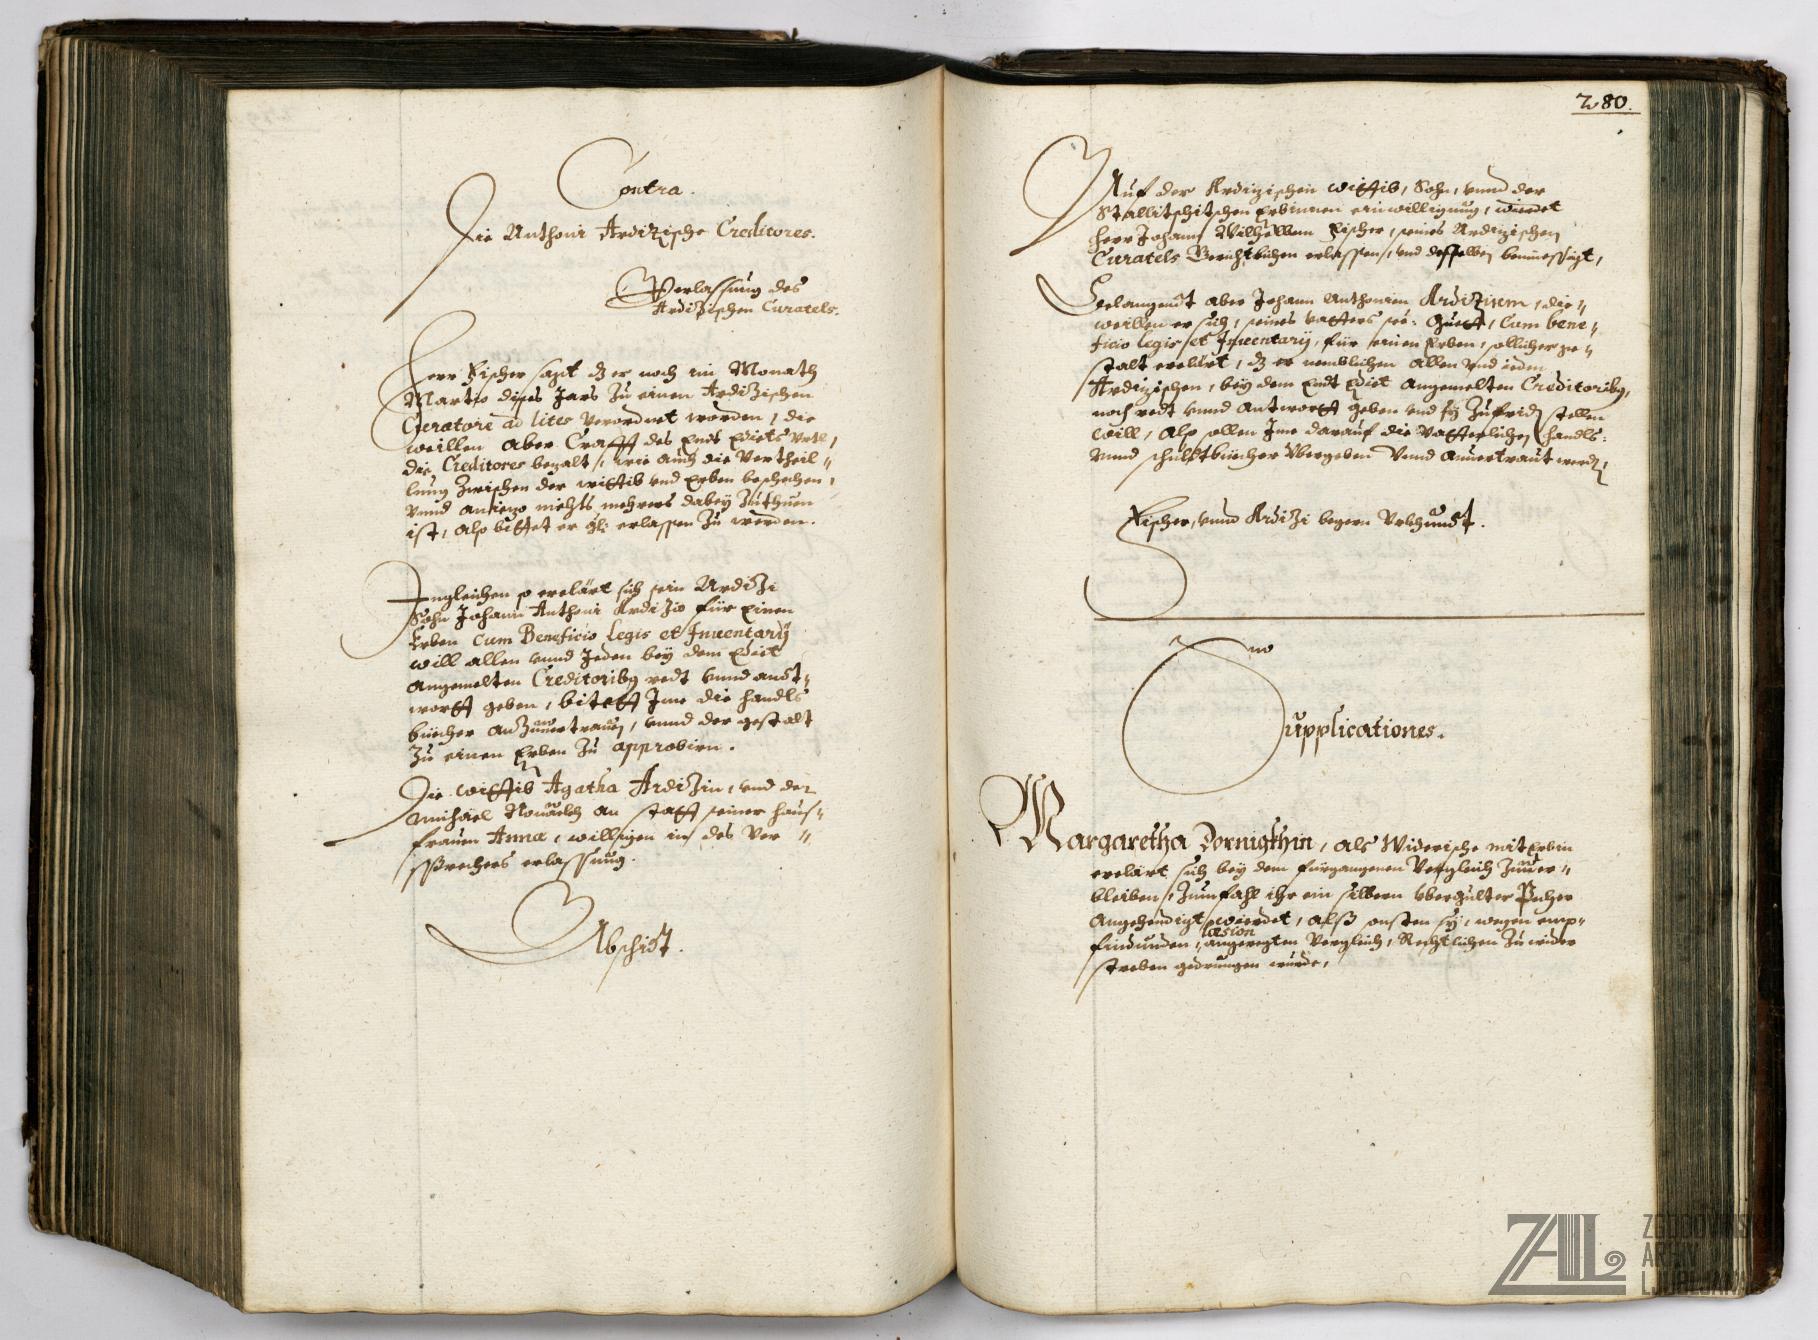 Contra.
Die Anthoni Ardizische Creditores.
Verlassung des
Ardizischen Curatels.
Herr Fischer sagt dz er noch im Monath
Martio dises Jars zu einem Ardizischen
Curatori ad lites verordnet worden, die
weillen aber Crafft des Endt Edicts
die Creditores bezalt, wie auch die Vertheil„
lung zwischen der wittib und Erben beschehen,
vnnd anietzo nichts mehrers dabey zuthuen
ist, Also bittet er erlassen zu werden.
Ingleichen so erclärt sich sein Ardizi
Sohn Johann Anthoni Ardizio für einen
Erben Cum Beneficio Legis et Inuentarij
will allen vnnd Jeden bey dem Edict
angemelten Creditoribus redt vnnd andt„
wortt geben, bitett Jme die handls
büecher anzuuertrauen, vnnd der gestalt
zu einen Erben zu approbirn.
Die wittib Agatha Ardizin, vnd der
Michael an statt seiner haus„
frauen Anna, willigen in des Ver„
sprechers erlassung.
Abschidt.
280.
Auf der Ardizischen wittib, Sohn, vnnd der
Stallitschitschen Erbinnen einwilligung, wierdet
Herr Johann Wilhelbm Fischer, seines Ardizischen
Curatels Gerichtlichen erlassen, vnd desselben bemiessigt,
Belangendt aber Johann Anthonien Ardizium, die„
weillen er sich, seines vatters see: Guett, Cum bene„
ficio legis et Inuentarij, für einen Erben, sollicher ge„
stalt erclärt, dz er nemblichen allen vnd ieden
Ardizischen, bey dem Endt Edict angemelten Creditoribus,
noch redt vnnd antwortt geben vnd sy zufriden stellen
will, Also sollen Jme darauf die vatterlichen handls:
vnnd schuldtbüecher vbergeben vnnd anuertraut werden,
Fischer, vnnd Ardizi begern Vrkhundt.
Supplicationes.
Margaretha Dornigkhin, als Widerische mit Erbin
erclärt sich bey dem fürgangenen Vergleich zuuer„
bleiben, zumfahl ihr ein silbern vbergulter Pecher
angehendigt wierdet, alß sonsten sy, wegen emp„
findunden, laesion angeregten Vergleich, Rechtlichen zu wider
streben gedrungen wurde,
ZAL
ARHIV